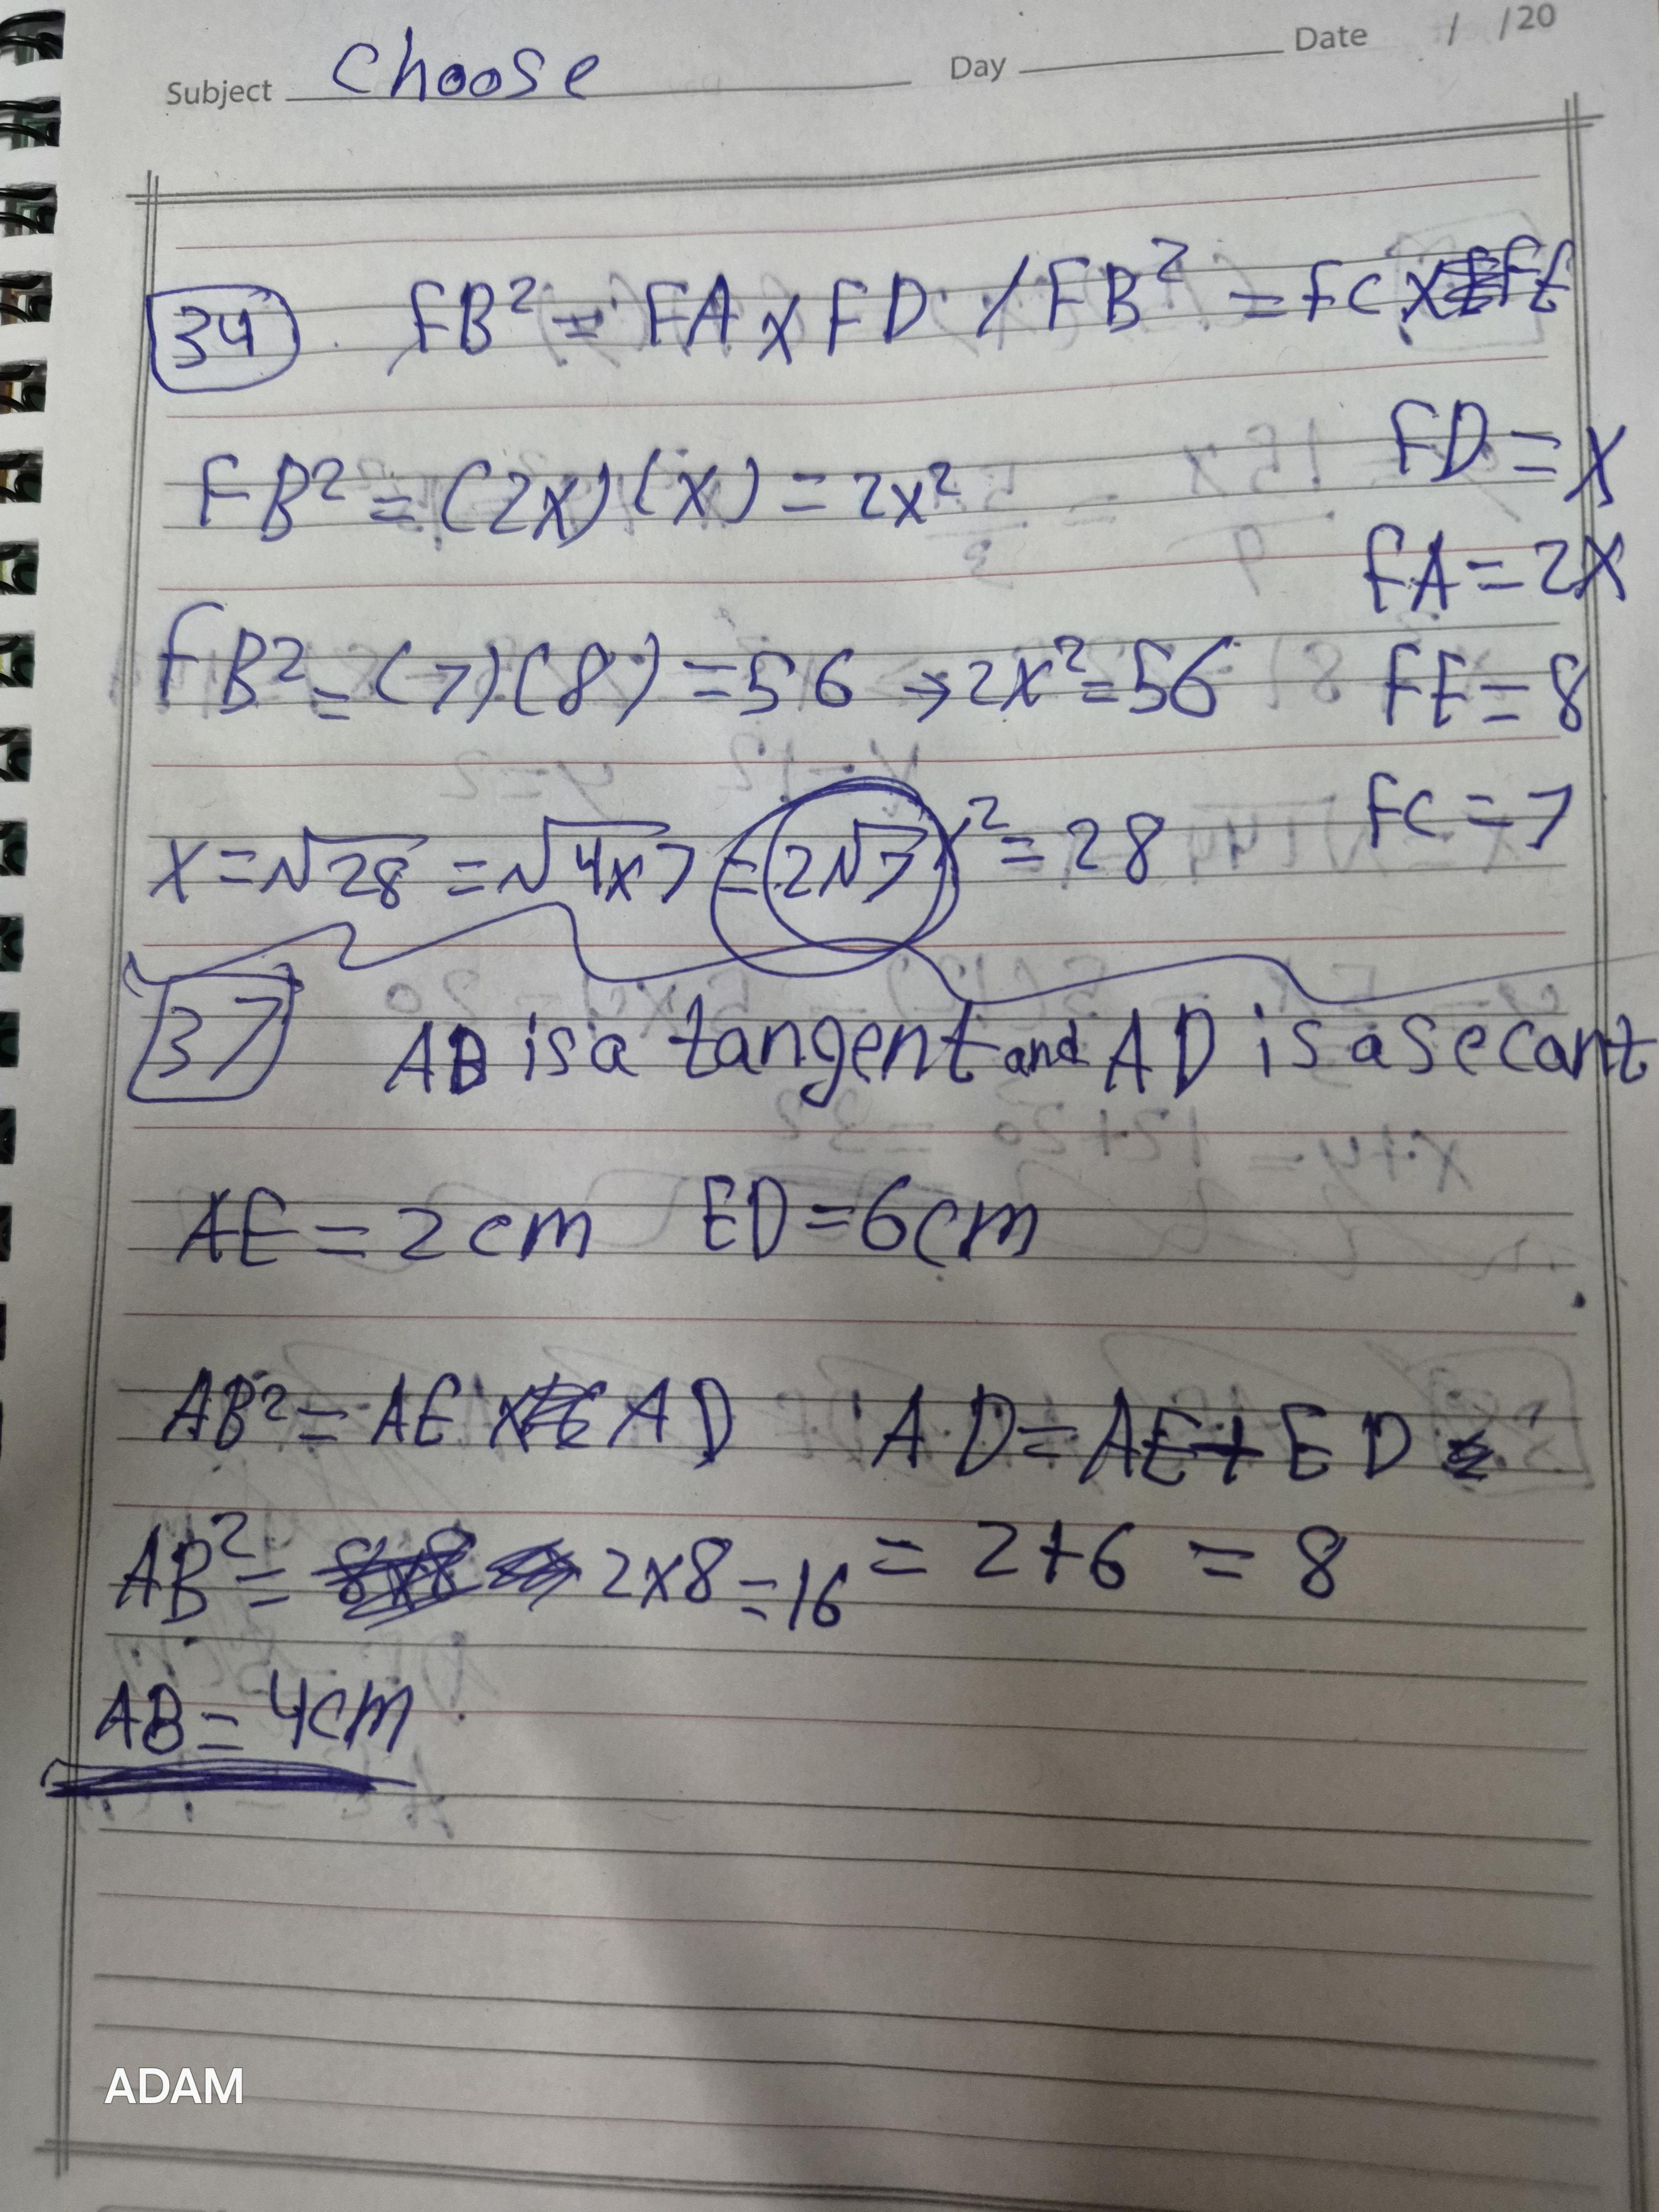 Subject Choose Day Date / /20
34 FB² = FA x FD / FB² = FC x FE
FD = x
FB² = (2x)(x) = 2x²
FA = 2x
FB² = (7)(8) = 56 → 2x² = 56
FE = 8
x² = 28
FC = 7
x = √28 = √4x7 = 2√7
37 AB is a tangent and AD is a secant
AE = 2cm ED = 6cm
AB² = AE x AD AD = AE + ED
AB² = 2x8 = 16 = 2+6 = 8
AB = 4cm
ADAM